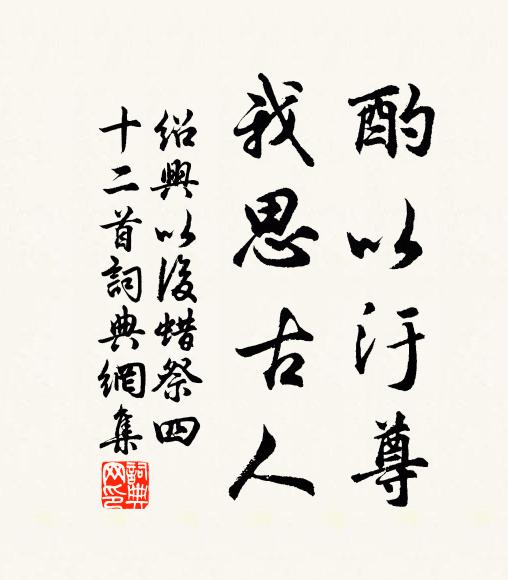 酌以汙尊
我思古人
紹興以後蜡祭四
十二首詞典網集
詞典
网印